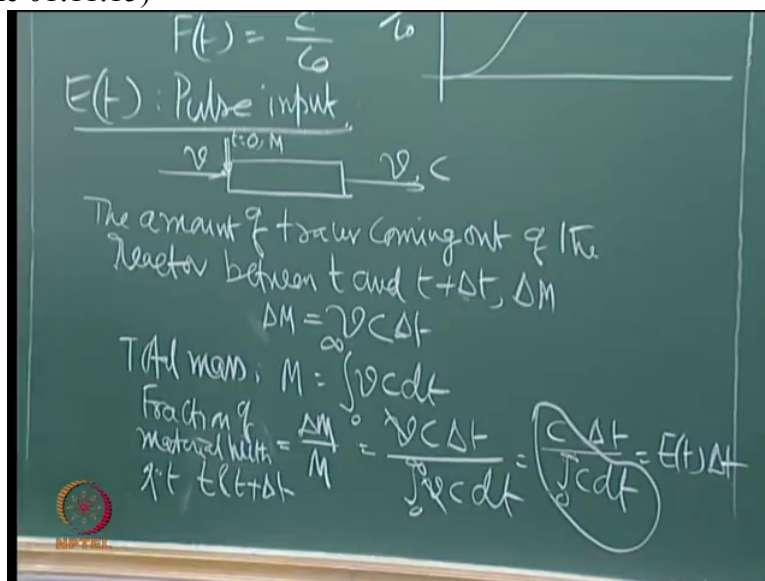 F(t) = C/C₀
E(t) : Pulse input
t=0, M
v
v, C
The amount of tracer coming out of the
Reactor between t and t+Δt, ΔM
ΔM = vCΔt
Total mass: M = ∫₀^∞ vcdt
Fraction of
material with = ΔM/M = vCΔt / ∫₀^∞ vcdt = CΔt / ∫₀^∞ cdt = E(t)Δt
t & t+Δt
NPTEL